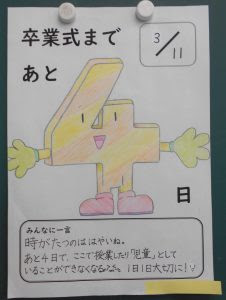 卒業式まで
あと
3/11
4
日
みんなに一言
時がたつのははやいね。
あと4日で、ここで授業したり「児童」として
いることができなくなるよ。1日1日大切に!